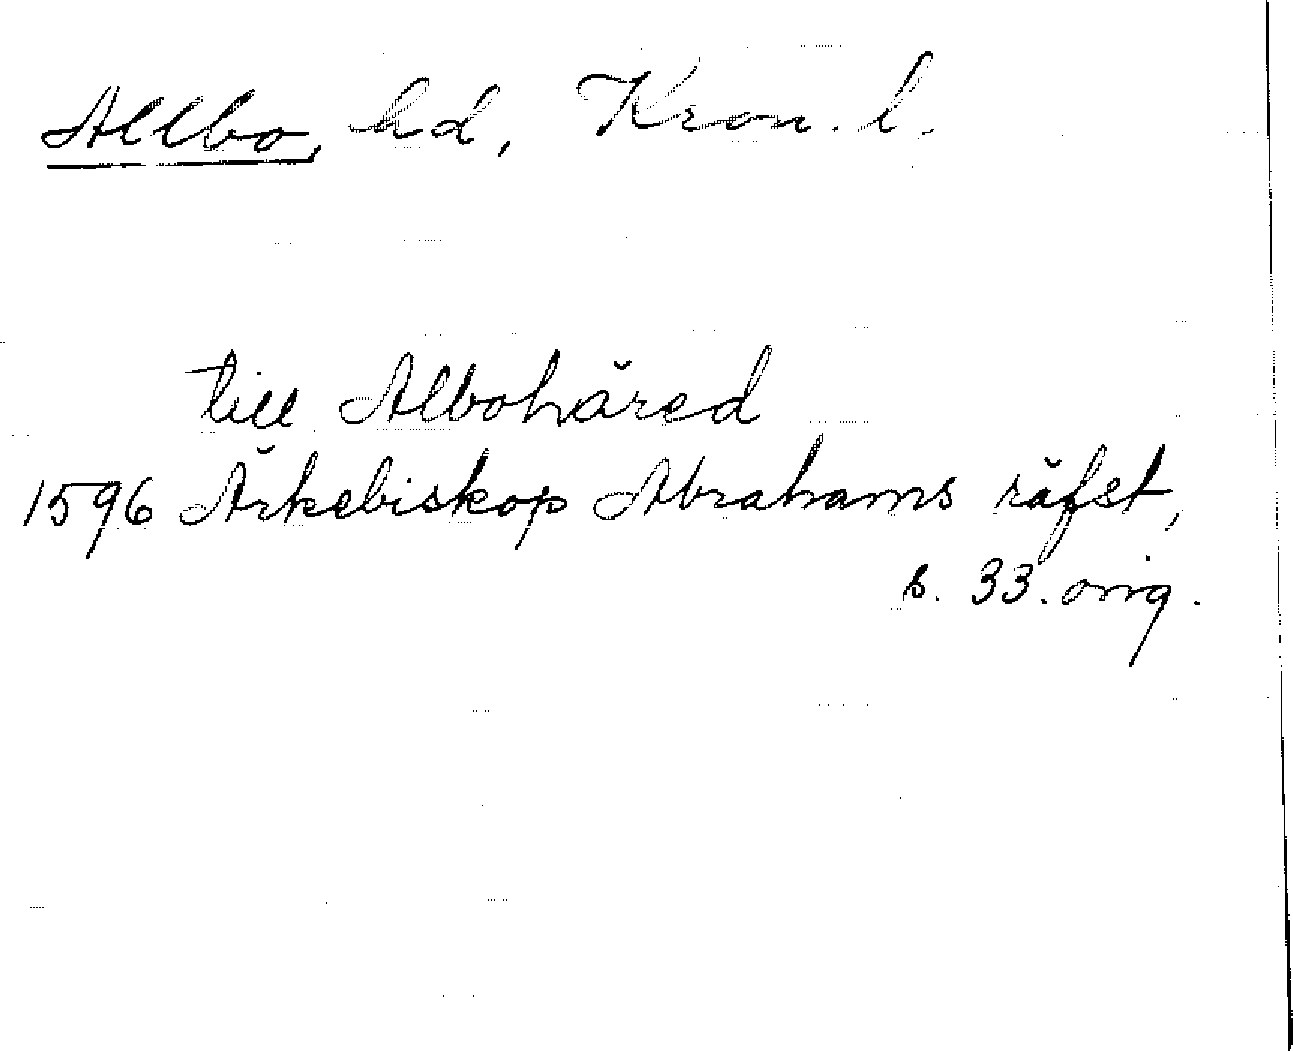 Allbo, hd, Kron. l.
till Albohäred
1596 Ärkebiskop Abrahams räfst,
s. 33. orig.